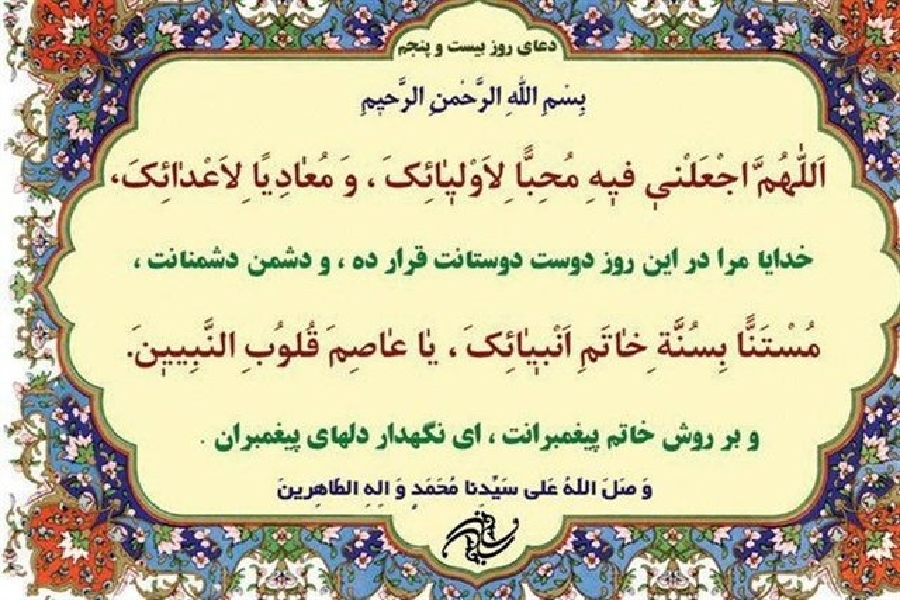 دعای روز بیست و پنجم
بِسْمِ اللهِ الرَّحْمنِ الرَّحیمِ
اَللّٰهُمَّ اجْعَلْنی فیهِ مُحِبًّا لِاَوْلیٰائِکَ ، وَ مُعٰادِیًا لِاَعْدٰائِکَ،
خدایا مرا در این روز دوست دوستانت قرار ده ، و دشمن دشمنانت ،
مُسْتَنًّا بِسُنَّةِ خٰاتَمِ اَنْبیٰائِکَ ، یٰا عٰاصِمَ قُلُوبِ النَّبِیینَ.
و بر روش خاتم پیغمبرانت ، ای نگهدار دلهای پیغمبران .
وَ صَلَ اللهُ عَلی سَیِّدِنا مُحَمَدٍ وَ الِهِ الطّاهِرینَ